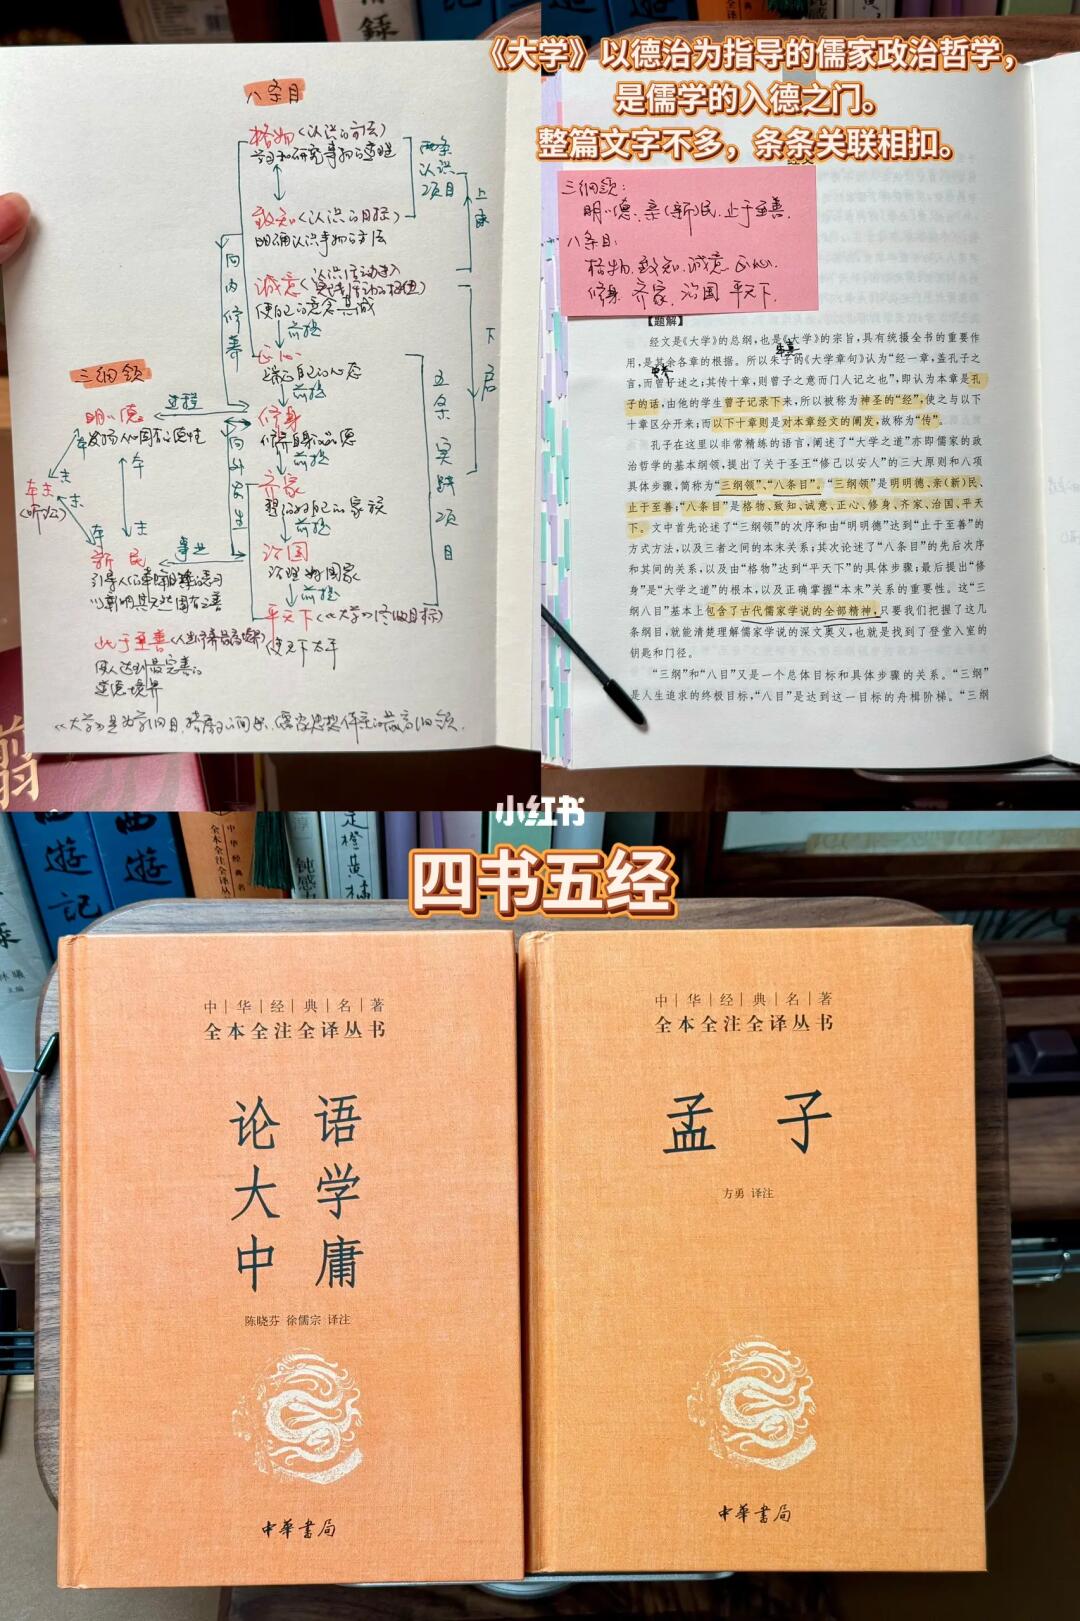 《大学》以德治为指导的儒家政治哲学，
是儒学的入德之门。
整篇文字不多，条条关联相扣。
八条目
格物（认识的方法）
学习和研究事物的道理
致知（认识的目标）
明确认识事物的方法
诚意
使自己的意念真诚
前提
正心
端正自己的心态
前提
修身
修养自身的品德
前提
齐家
前提
治国
治理好国家
前提
平天下（《大学》的终极目标）
使天下太平
两条
认识
项目
上承
下启
五条实践项目
向内修养
向外发生
三纲领
明明德
过程
新民
事业
止于至善
使人达到最完善的
道德境界
三纲领：
明明德、亲（新）民、止于至善.
八条目：
格物、致知、诚意、正心、
修身、齐家、治国、平天下.
【题解】
经文是《大学》的总纲，也是《大学》的宗旨，具有统摄全书的重要作
用，是其余各章的根据。所以朱子的《大学章句》认为“经一章，盖孔子之
言，而曾子述之；其传十章，则曾子之意而门人记之也”，即认为本章是孔
子的话，由他的学生曾子记录下来，所以被称为神圣的“经”，使之与以下
十章区分开来；而以下十章则是对本章经文的阐发，故称为“传”。
孔子在这里以非常精练的语言，阐述了“大学之道”亦即儒家的政
治哲学的基本纲领，提出了关于圣王“修己以安人”的三大原则和八项
具体步骤，简称为“三纲领”、“八条目”。“三纲领”是明明德、亲（新）民、
止于至善；“八条目”是格物、致知、诚意、正心、修身、齐家、治国、平天
下。文中首先论述了“三纲领”的次序和由“明明德”达到“止于至善”的
方式方法，以及三者之间的本末关系；其次论述了“八条目”的先后次序
和其间的关系，以及由“格物”达到“平天下”的具体步骤；最后提出“修
身”是“大学之道”的根本，以及正确掌握“本末”关系的重要性。这“三
纲八目”基本上包含了古代儒家学说的全部精神，只要我们把握了这几
条纲目，就能清楚理解儒家学说的深文奥义，也就是找到了登堂入室的
钥匙和门径。
“三纲”和“八目”又是一个总体目标和具体步骤的关系。“三纲”
是人生追求的终极目标，“八目”是达到这一目标的舟楫阶梯。“三纲
小红书
四书五经
西遊記
西遊
中华经典名著
全本全注全译丛书
论语
大学
中庸
陈晓芬 徐儒宗 译注
中華書局
中华经典名著
全本全注全译丛书
孟子
方勇 译注
中華書局